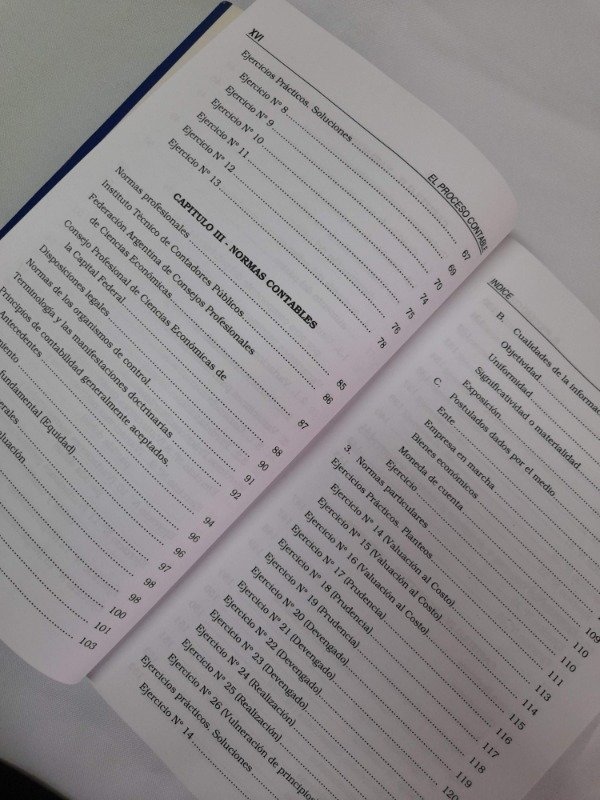 XVI
EL PROCESO CONTABLE
Ejercicios Prácticos. Soluciones 67
Ejercicio N° 8 69
Ejercicio N° 9 70
Ejercicio N° 10 74
Ejercicio N° 11 75
Ejercicio N° 12 76
Ejercicio N° 13 78
CAPITULO III - NORMAS CONTABLES
Normas profesionales 85
Instituto Técnico de Contadores Públicos 86
Federación Argentina de Consejos Profesionales
de Ciencias Económicas 87
Consejo Profesional de Ciencias Económicas de
la Capital Federal 88
Disposiciones legales 90
Normas de los organismos de control 91
Terminología y las manifestaciones doctrinarias 92
Principios de contabilidad generalmente aceptados 94
Antecedentes 96
96
fundamental (Equidad) 97
98
98
100
101
103
INDICE
B. Cualidades de la
Objetividad
Uniformidad
Significatividad o materialidad
Exposición
C. Postulados dados por el medio
Ente
Empresa en marcha
Bienes económicos
Moneda de cuenta
Ejercicio
3. Normas particulares
Ejercicios Prácticos. Planteos
Ejercicio N° 14 (Valuación al Costo)
Ejercicio N° 15 (Valuación al Costo)
Ejercicio N° 16 (Valuación al Costo)
Ejercicio N° 17 (Prudencia)
Ejercicio N° 18 (Prudencia)
Ejercicio N° 19 (Prudencia)
Ejercicio N° 20 (Devengado)
Ejercicio N° 21 (Devengado)
Ejercicio N° 22 (Devengado)
Ejercicio N° 23 (Devengado)
Ejercicio N° 24 (Realización)
Ejercicio N° 25 (Realización)
Ejercicio N° 26 (Vulneración de principios
Ejercicios prácticos. Soluciones
Ejercicio N° 14
109
110
110
111
113
114
115
116
117
118
119
120